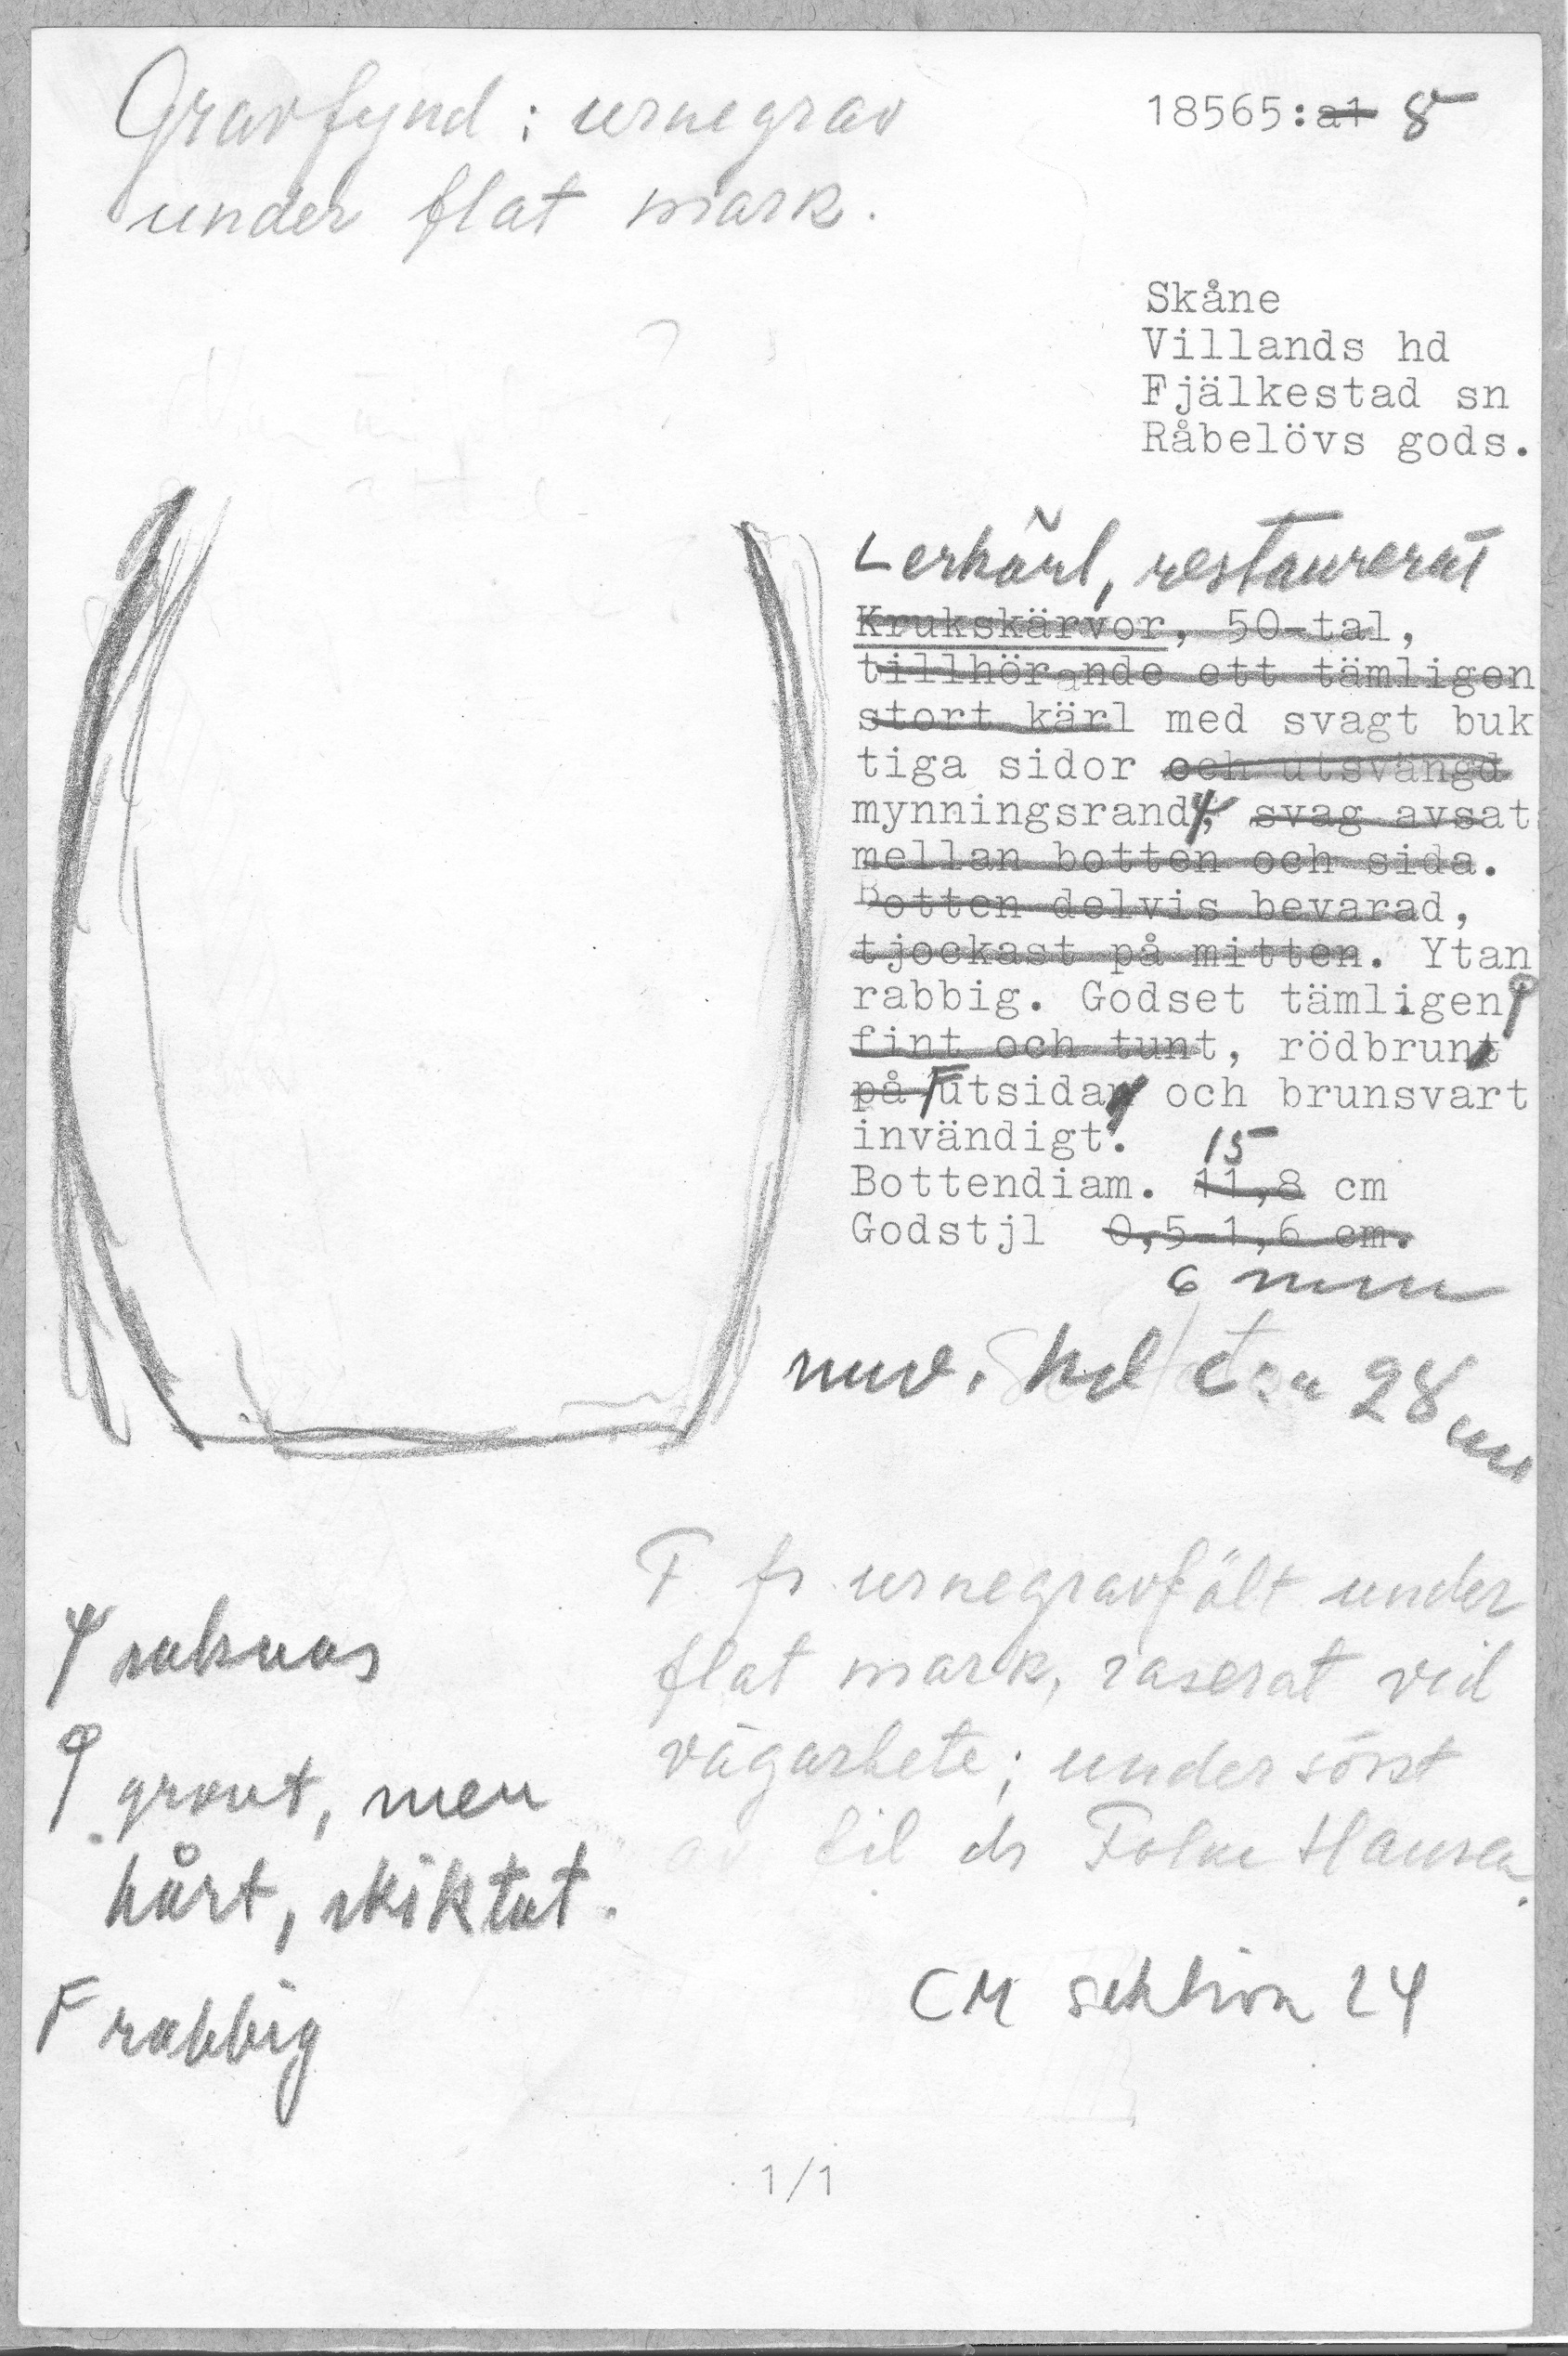 Gravfynd: urnegrav
under flat mark.
18565:a1 8
Skåne
Villands hd
Fjälkestad sn
Råbelövs gods.
Lerkärl, restaurerat
Krukskärvor, 50-tal,
tillhörande ett tämligen
stort kärl med svagt buk
tiga sidor och utsvängd
mynningsrand, svag avsat
mellan botten och sida.
Botten delvis bevarad,
tjockast på mitten. Ytan
rabbig. Godset tämligen
fint och tunt, rödbrunt
på F utsidan och brunsvart
invändigt.
15
Bottendiam. 11,8 cm
Godstjl 0,5-1,6 cm.
6 mm
nuv. höjd 28 cm
F. fr. urnegravfält under
flat mark, raserat vid
vägarbete; undersökt
av fil dr Folke Hansen.
saknas
grovt, men
hårt, skiktat.
F rabbig
CM sektion 24
1/1